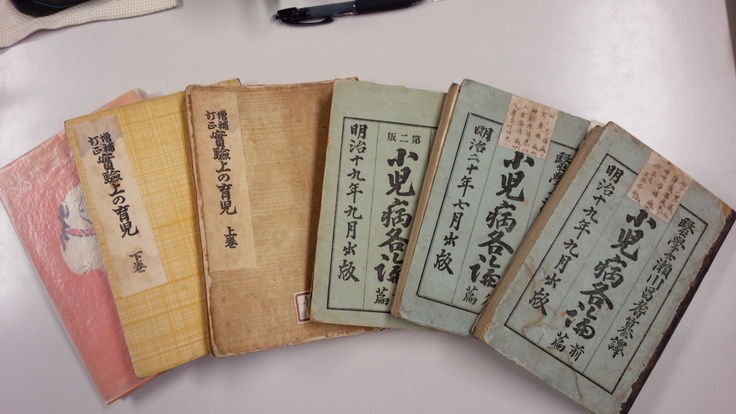 増補
訂正
實驗上の育児
下巻
増補
訂正
實驗上の育児
上巻
第二版
小児病各論
篇
明治十九年九月出版
醫學士
小児病各論
明治二十年七月出版
醫學士瀬川昌耆纂譯
小児病各論
前篇
明治十九年九月出版